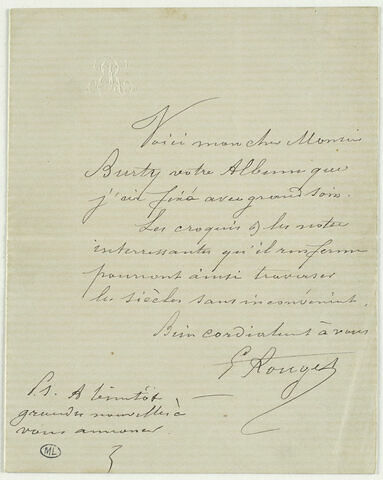 Voici mon cher Monsieur
Burty votre Album que
j'ai fixé avec grand soin.
Les croquis & les notes
interressantes qu'il renferme
pourront ainsi traverser
les siècles sans inconvénient.
Bien cordialent à vous
E Rouget
P.S. A bientôt
grandes nouvelles à
vous annoncer
ML